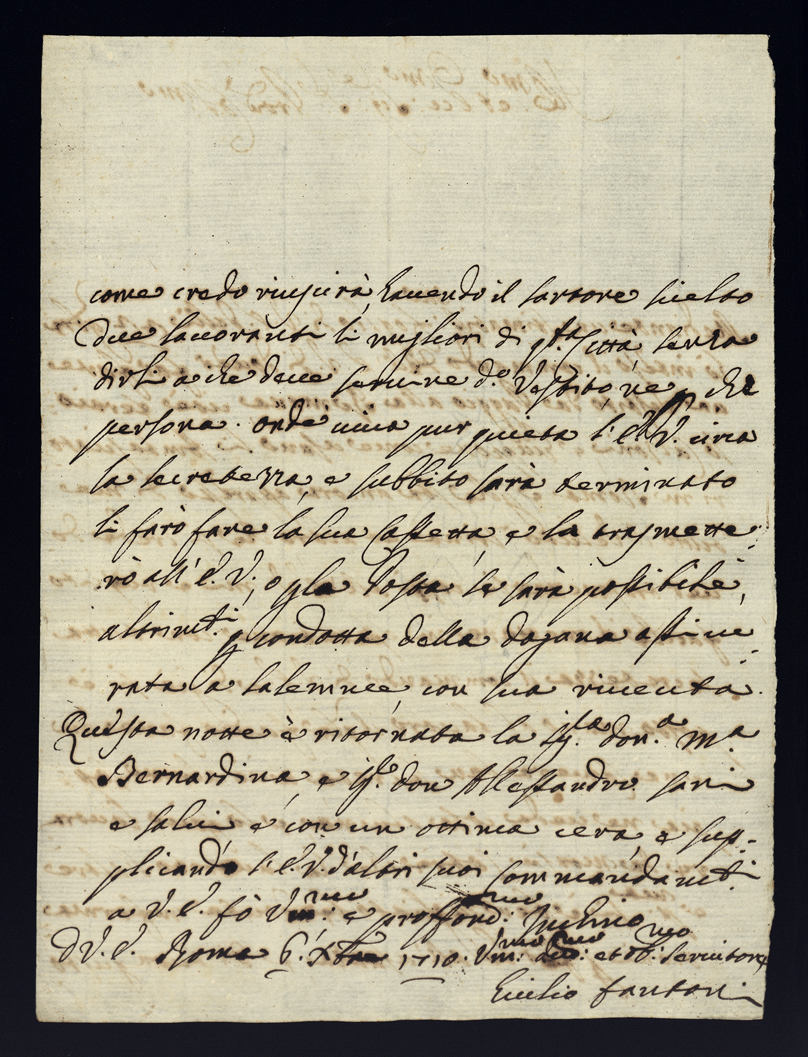 come credo riuscirà, havendo il sartore scielto
due lavoranti li migliori di q.ta Città senza
dirli a che deve servire d.o Vestito, ne p che
persona. onde viva pur quieta l'E. V. circa
la secretezza, e subbito sarà terminato
li farò fare la sua Cassetta, e la trasmette:
rò all'E. V., o p la Posta se sarà possibile,
altrim.ti p condotta della dogana assicu:
rata a talemnee, con sua riceuta.
Questa notte è ritornata la Sig.ra don.a M.a
Bernardina, e Sig.r don Alessandro sani
e salvi e con un ottima cera, e sup-
plicando l'E. V. d'altri suoi commandam.ti
a V. E. fò Um.mo: e profond.mo: Inchino
D V. E. Roma 6. Xbre 1710. Um.mo: et Ob.mo: Servitore
Emilio Fantoni